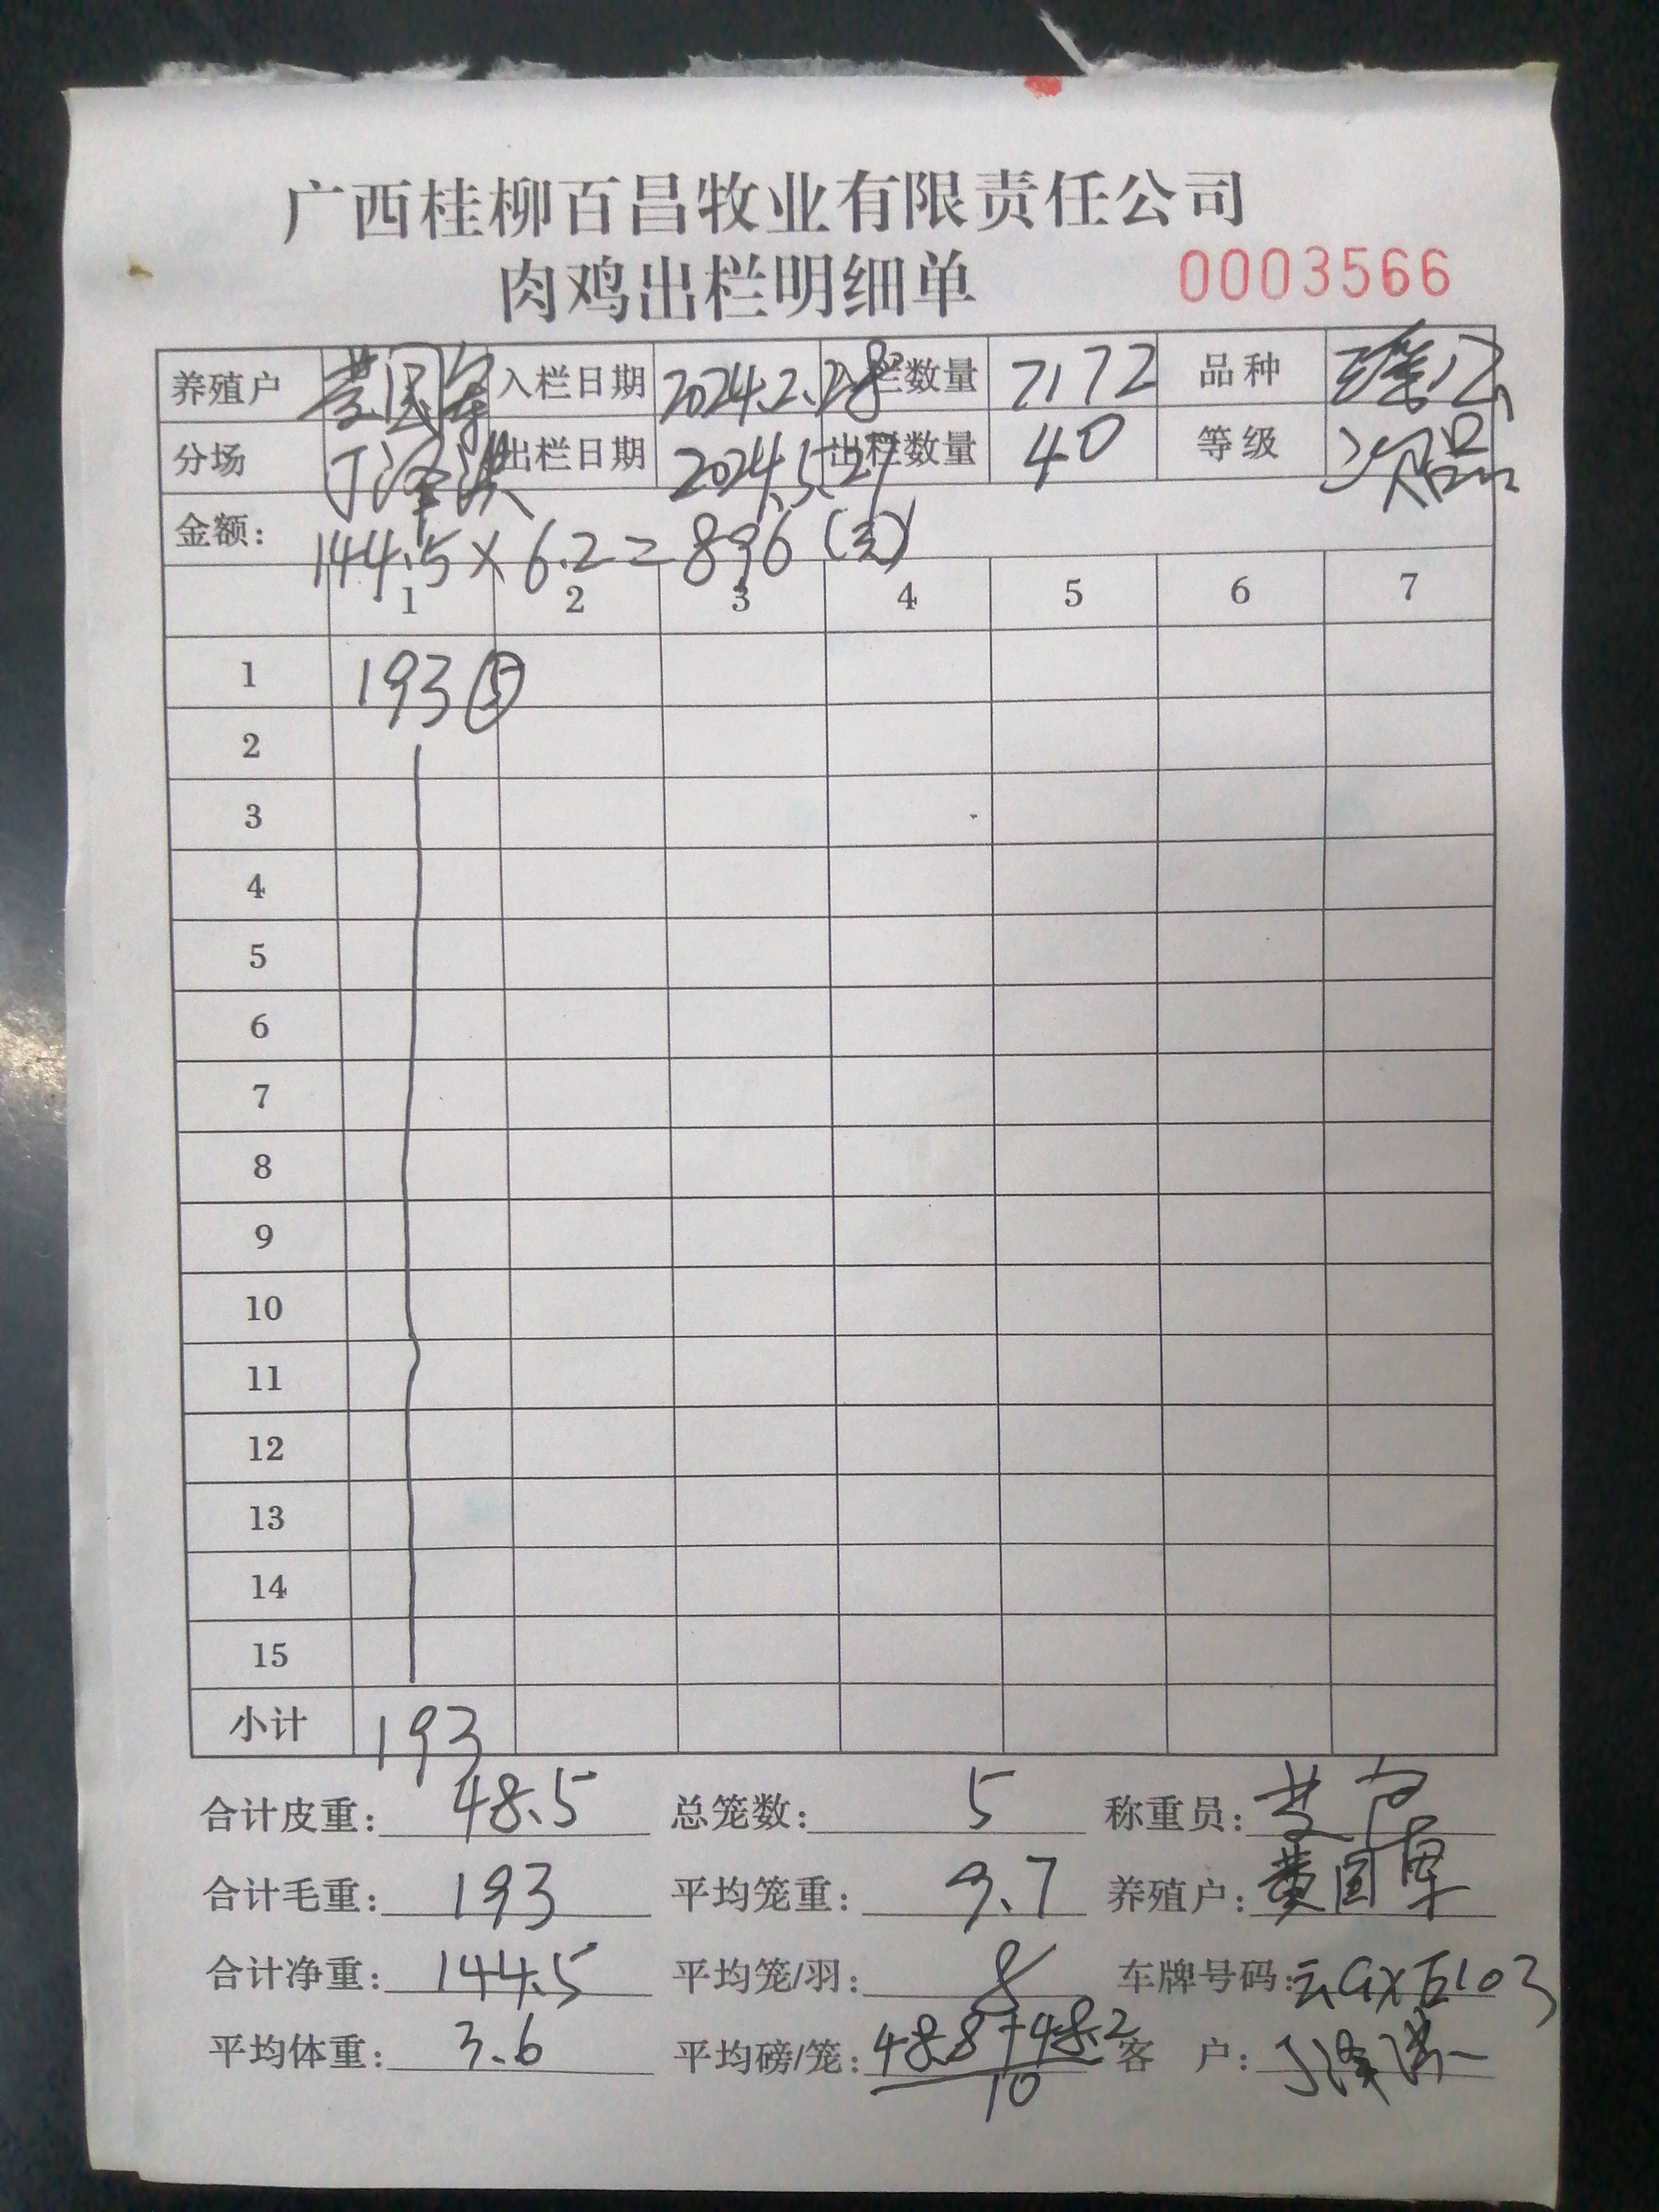 广西桂柳百昌牧业有限责任公司
肉鸡出栏明细单 0003566
养殖户 黄国军 入栏日期 2024.2.28 入栏数量 7172 品种
分场 丁泽洪 出栏日期 2024.5.27 出栏数量 40 等级 次品
金额: 144.5×6.2=896(元)
1 2 3 4 5 6 7
1 193 ⑤
2
3
4
5
6
7
8
9
10
11
12
13
14
15
小计 193
合计皮重: 48.5 总笼数: 5 称重员:
合计毛重: 193 平均笼重: 9.7 养殖户: 黄国军
合计净重: 144.5 平均笼/羽: 8 车牌号码: 云GXE103
平均体重: 3.6 平均磅/笼: 48.8+48.2 客 户: 丁泽洪
10